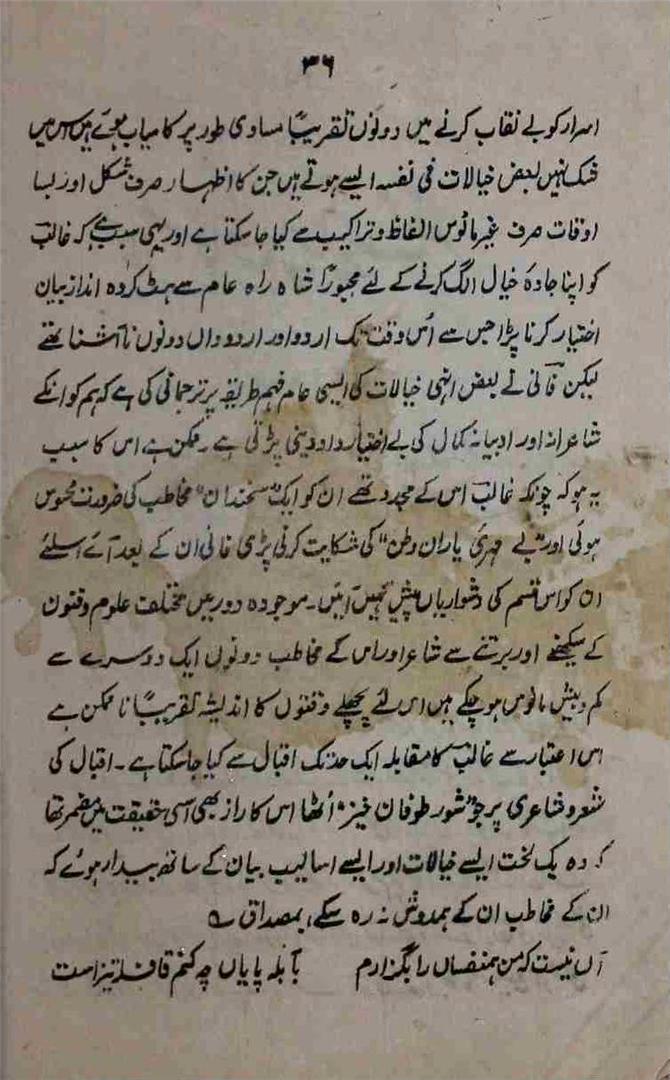 ۳۶
اسرار کو بے نقاب کرنے میں دونوں تقریباً مساوی طور پر کامیاب ہوئے ہیں اس میں
شک نہیں بعض خیالات فی نفسہ ایسے ہوتے ہیں جن کا اظہار صرف مشکل اور بسا
اوقات صرف غیر مانوس الفاظ و تراکیب سے کیا جا سکتا ہے اور یہی سبب ہے کہ غالب
کو اپنا جادۂ خیال الگ کرنے کے لئے مجبوراً شاہ راہ عام سے ہٹ کر وہ انداز بیان
اختیار کرنا پڑا جس سے اُس وقت تک اردو اور اردو داں دونوں نا آشنا تھے
لیکن فانی نے بعض انہی خیالات کی ایسی عام فہم طریقہ پر ترجمانی کی ہے کہ ہم کو انکے
شاعرانہ اور ادبیانہ کمال کی بے اختیار داد دینی پڑتی ہے۔ ممکن ہے اس کا سبب
یہ ہو کہ چونکہ غالب اس کے مجدد تھے ان کو ایک "سخندان" مخاطب کی ضرورت محسوس
ہوئی اور "بے مہریٔ یاران وطن" کی شکایت کرنی پڑی فانی ان کے بعد آئے اسلئے
ان کو اس قسم کی دشواریاں پیش نہیں آئیں۔ موجودہ دور میں مختلف علوم و فنون
کے سیکھنے اور برتنے سے شاعر اور اس کے مخاطب دونوں ایک دوسرے سے
کم و بیش مانوس ہو چکے ہیں اس لئے پچھلے وقتوں کا اندیشہ تقریباً نا ممکن ہے
اس اعتبار سے غالب کا مقابلہ ایک حد تک اقبال سے کیا جا سکتا ہے۔ اقبال کی
شعر و شاعری پر جو "شور طوفان خیز" اُٹھا اس کا راز بھی اسی حقیقت میں مضمر تھا
کہ وہ یک لخت ایسے خیالات اور ایسے اسالیب بیان کے ساتھ بیدار ہوئے کہ
ان کے مخاطب ان کے ہمدوش نہ رہ سکے، بمصداق ے
آں نیست کہ من ہمنفساں را بگذارم با آبلہ پایاں چہ کنم قافلہ تیز است